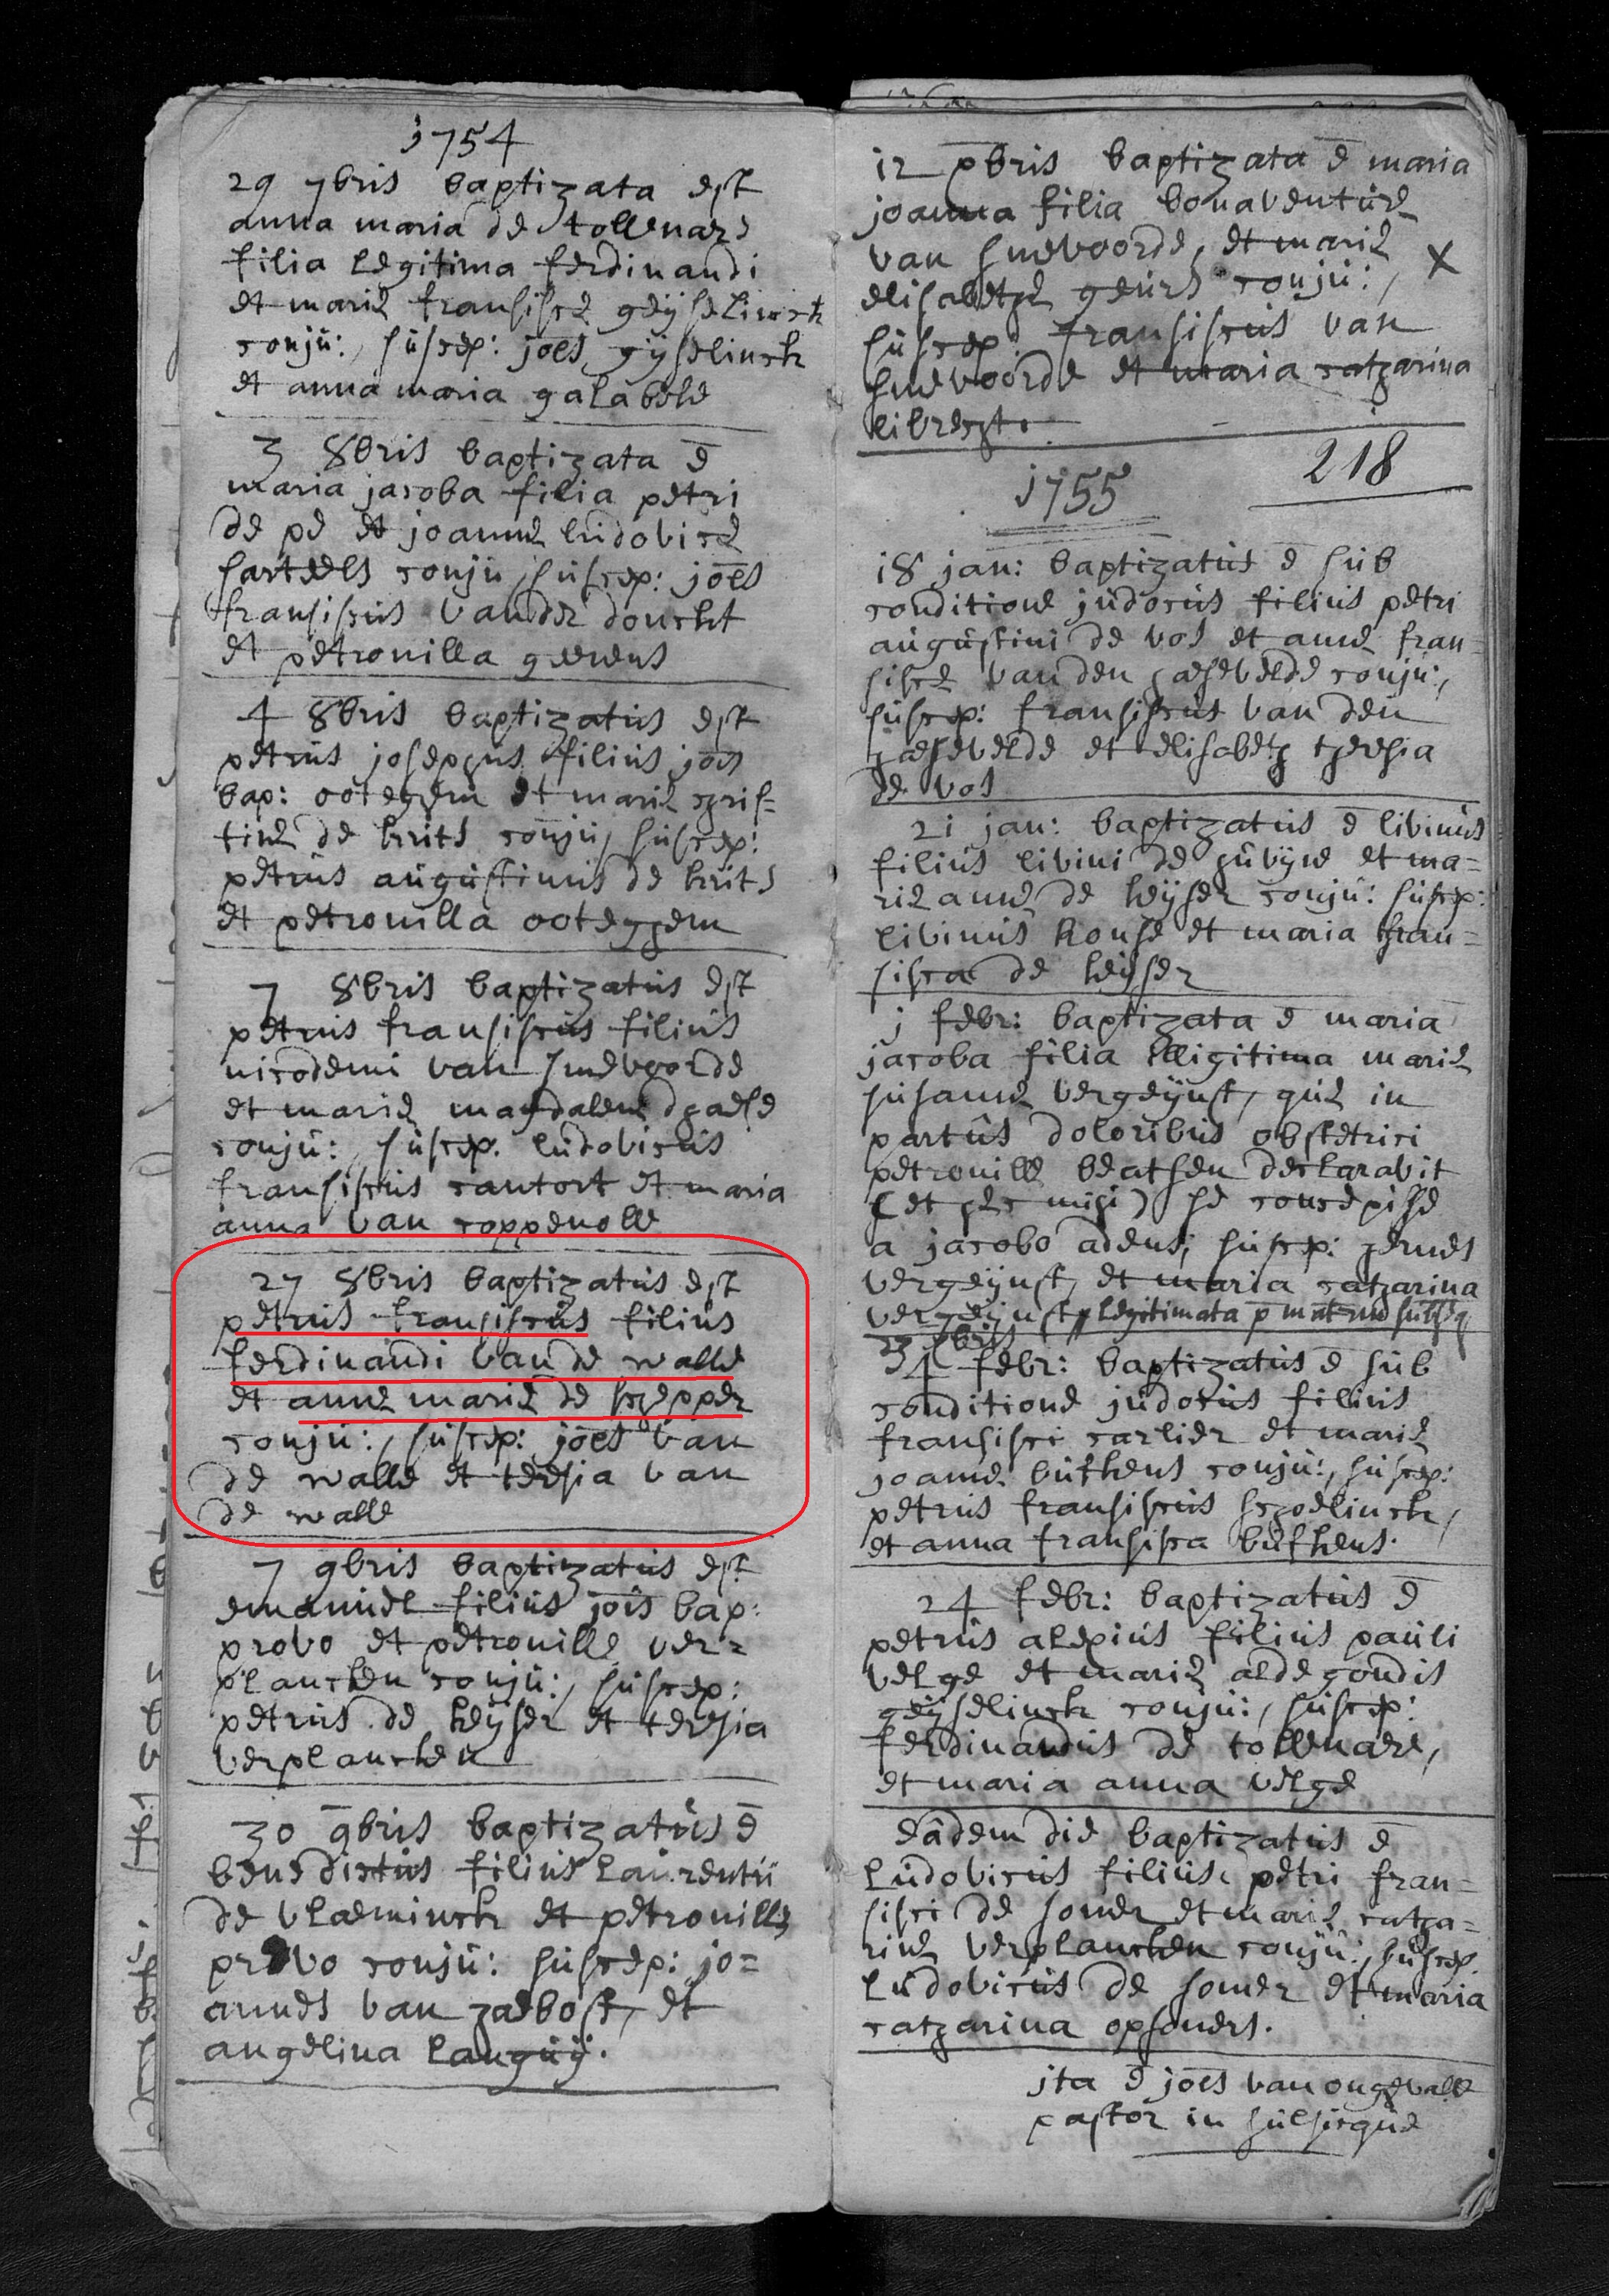 1754
29 7bris baptizata est
anna maria de tollenare
filia legitima ferdinandi
et mariæ fransiscæ geijselinck
conju:, suscep: joēs gijselinck
et anna maria galabele
3 8bris baptizata ē
maria jacoba filia petri
de pe et joannæ ludovicæ
sarteels conju, suscep: joēs
fransiscus vander donckt
et petronilla geerens
4 8bris baptizatus est
petrus josephus filius jois
bap: ooteghem et mariæ chris=
tinæ de krits conju, suscep:
petrus augustinus de krits
et petronilla ooteghem
7 8bris baptizatus est
petrus fransiscus filius
nicodemi van snevoorde
et mariæ magdalenæ dhaese
conju:, suscep. ludovicus
fransiscus cantort et maria
anna van coppenolle
27 8bris baptizatus est
petrus fransiscus filius
ferdinandi van de walle
et annæ mariæ de schepper
conju:, suscep: joēs van
de walle et teresia van
de walle
7 9bris baptizatus est
emanuel filius jois bap:
provo et petronillæ ver=
plancken conju:, suscep:
petrus de keijser et teresia
verplancken
30 9bris baptizatus ē
benedictus filius laurentii
de vlaeminck et petronillæ
provo conju: suscep: jo=
annes van haebost, et
angelina languij.
12 xbris baptizata ē maria
joanna filia bonaventuræ
van snevoorde, et mariæ
elisabethæ geurs conju:, X
suscep: fransiscus van
snevoorde et maria catharina
librecht.
218
1755
18 jan: baptizatus ē sub
conditione judocus filius petri
augustini de vos et annæ fran=
siscæ van den haesevelde conju:,
suscep: fransiscus van den
haesevelde et elisabeth theresia
de vos
21 jan: baptizatus ē livinus
filius livini de huvijne et ma=
riæ annæ de keijser conju: suscep:
livinus konse et maria fran=
sisca de keijser
j febr: baptizata ē maria
jacoba filia illigitima mariæ
susannæ vergeijnst, quæ in
partus doloribus obstetrici
petronillæ beatsen declaravit
(et hæc mihi) se concepisse
a jacobo adens; suscep: hermes
vergeijnst, et maria catharina
vergeijnst, legitimata p matrim subseq
24 febr: baptizatus ē sub
conditione judocus filius
fransisci carlier et mariæ
joannæ buskens conju:, suscep:
petrus fransiscus schoelinck,
et anna fransisca buskens.
24 febr: baptizatus ē
petrus alexius filius pauli
velge et mariæ aldegondis
geijselinck conju:, suscep:
ferdinandus de tollenaere,
et maria anna velge
eâdem die baptizatus ē
ludovicus filius petri fran=
sisci de somer et mariæ catha=
rinæ verplancken conju:, suscep.
ludovicus de somer et maria
catharina opsomers.
jta ē joēs van ongevalle
pastor in sulsicque